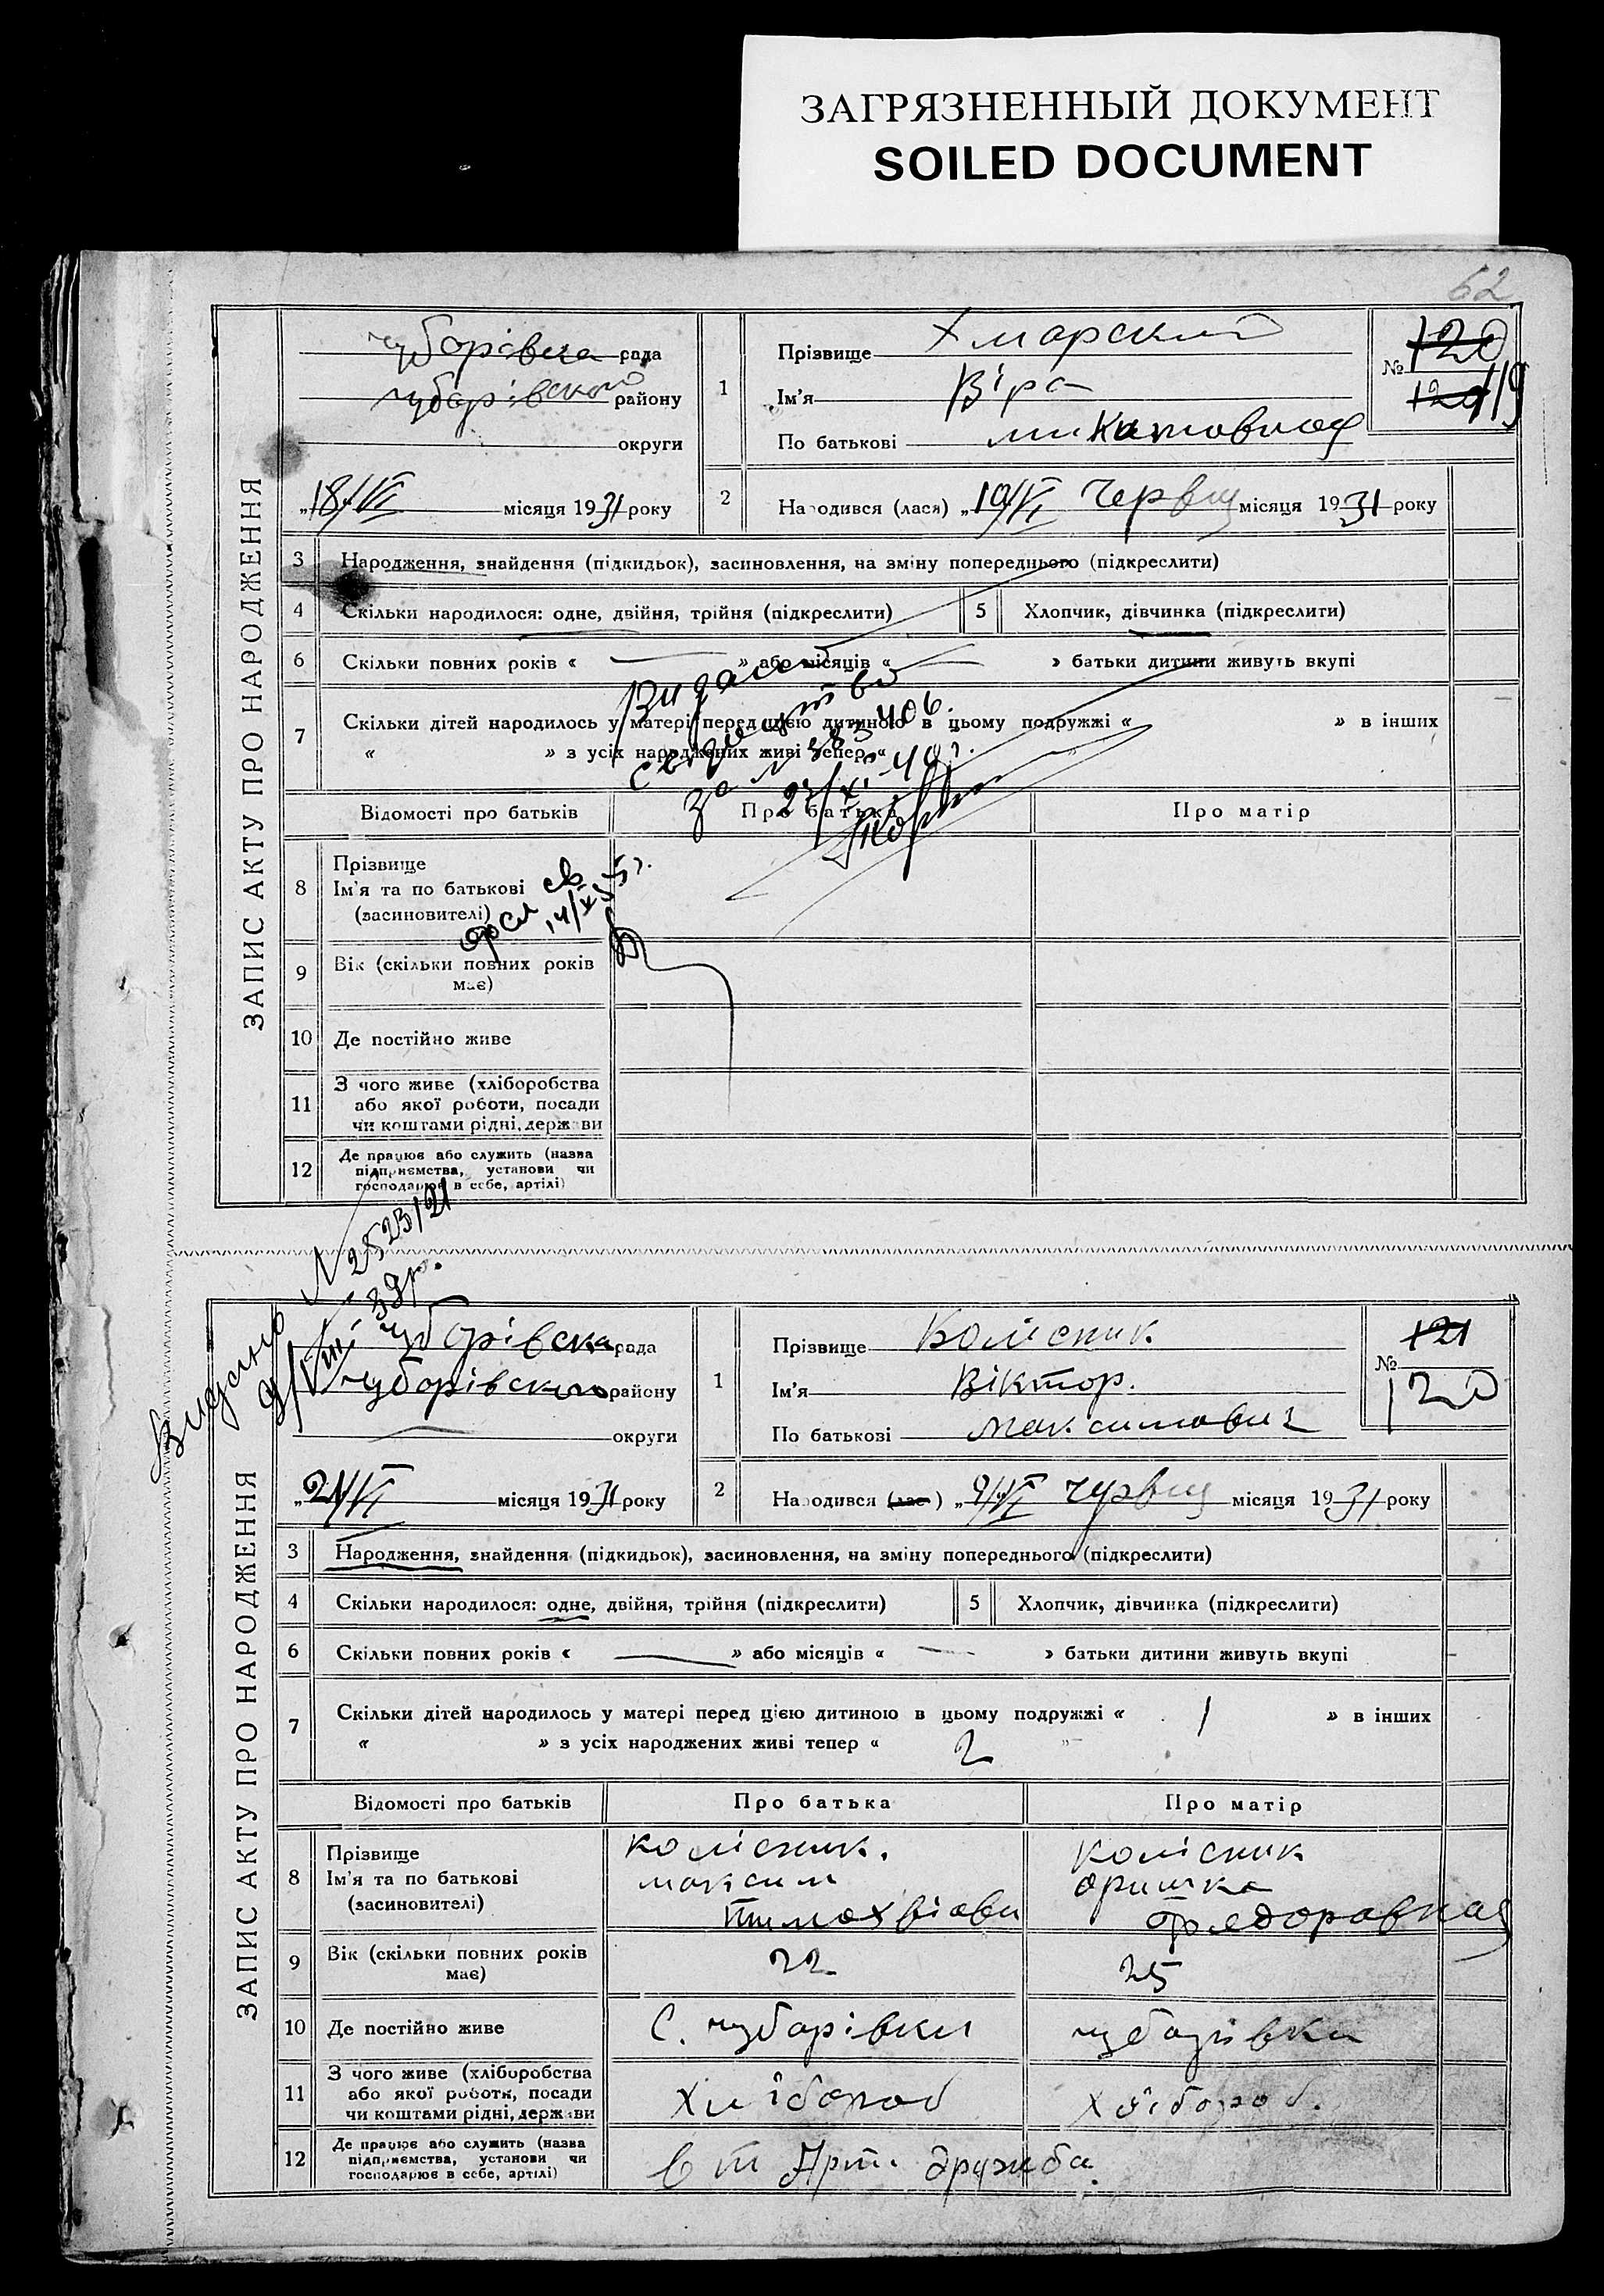 ЗАГРЯЗНЕННЫЙ ДОКУМЕНТ
SOILED DOCUMENT
62
ЗАПИС АКТУ ПРО НАРОДЖЕННЯ
чубарівська рада
чубарівского району
округи
„18/VI місяця 1931 року
1
Прізвище Хмарский
Ім'я Віра
По батькові
№ 120
119
2
Народився (лася) „10/VI червця місяця 1931 року
3 Народження, знайдення (підкидьок), засиновлення, на зміну попереднього (підкреслити)
4 Скільки народилося: одне, двійня, трійня (підкреслити)
5 Хлопчик, дівчинка (підкреслити)
6 Скільки повних років « — » або місяців « — » батьки дитини живуть вкупі
7 Скільки дітей народилось у матері перед цією дитиною в цьому подружжі « » в інших
« » з усіх народжених живі тепер «
за №
27/XI-40 г.
Відомості про батьків
Про батька
Про матір
8 Прізвище
Ім'я та по батькові
(засиновителі)
9 Вік (скільки повних років
має)
10 Де постійно живе
11 З чого живе (хліборобства
або якої роботи, посади
чи коштами рідні, держави
12 Де працює або служить (назва
підприємства, установи чи
господарює в себе, артілі)
Видано № 2523/21
39 р.
ЗАПИС АКТУ ПРО НАРОДЖЕННЯ
чубарівска рада
чубарівского району
округи
„21/VI місяця 1931 року
1
Прізвище Колісник
Ім'я Віктор.
По батькові Максимович
121
№
120
2
Народився (лас ) „9/VI червця місяця 1931 року
3 Народження, знайдення (підкидьок), засиновлення, на зміну попереднього (підкреслити)
4 Скільки народилося: одне, двійня, трійня (підкреслити)
5 Хлопчик, дівчинка (підкреслити)
6 Скільки повних років « — » або місяців « — » батьки дитини живуть вкупі
7 Скільки дітей народилось у матері перед цією дитиною в цьому подружжі « 1 » в інших
« » з усіх народжених живі тепер « 2 »
Відомості про батьків
Про батька
Про матір
8 Прізвище
Ім'я та по батькові
(засиновителі)
колісник.
максим
тимохвіови
колісник
оришка
федоравная
9 Вік (скільки повних років
має)
22
25
10 Де постійно живе
С. чубарівки
чубарівки
11 З чого живе (хліборобства
або якої роботи, посади
чи коштами рідні, держави
Хлібороб
Хлібороб.
12 Де працює або служить (назва
підприємства, установи чи
господарює в себе, артілі)
в т Арт. дружба.